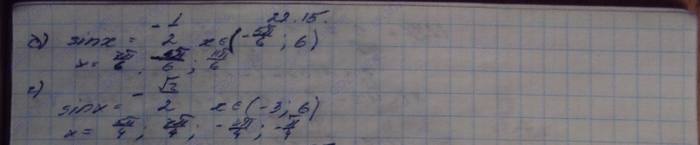 22.15.
б) sinx = -1/2 x∈(-5π/6; 6)
x = 7π/6; 11π/6
г)
sinx = -√2/2 x∈(-3; 6)
x = 5π/4; 7π/4; -3π/4; -π/4